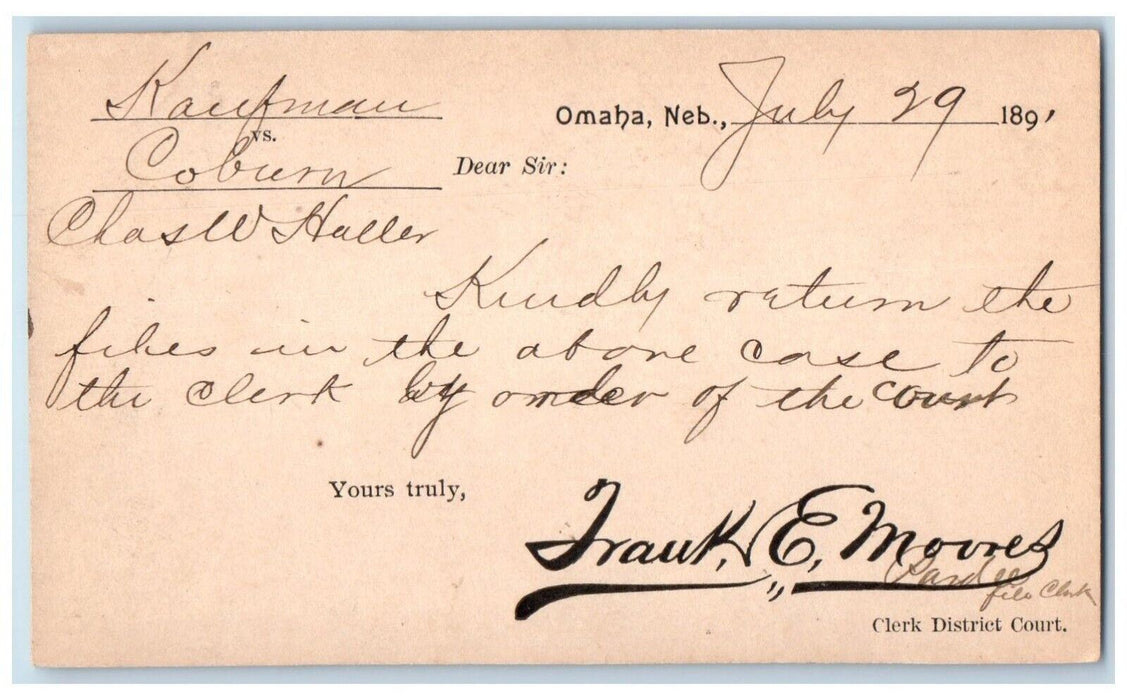 Kaufman
vs.
Coburn
Omaha, Neb., July 29 1891
Dear Sir:
Chas W Haller
Kindly return the
files in the above case to
the clerk by order of the court
Yours truly,
Frank, E, Moores
file Clerk
Clerk District Court.